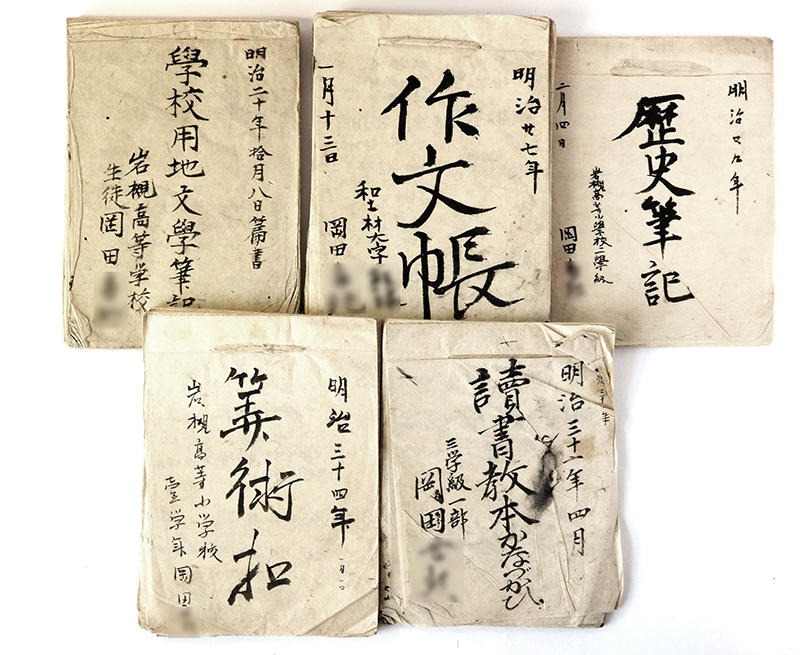 明治二十年拾月八日篇書
學校用地文學筆記
岩槻高等学校
生徒岡田
明治廿七年
作文帳
一月十三日
岡田
明治廿九年
歴史筆記
二月四日
岩槻高等小學校二學級
岡田
明治三十四年
算術扣
岩槻高等小学校
壹学年岡田
明治三十一年四月
讀書教本かなづかひ
三学級一部
岡田